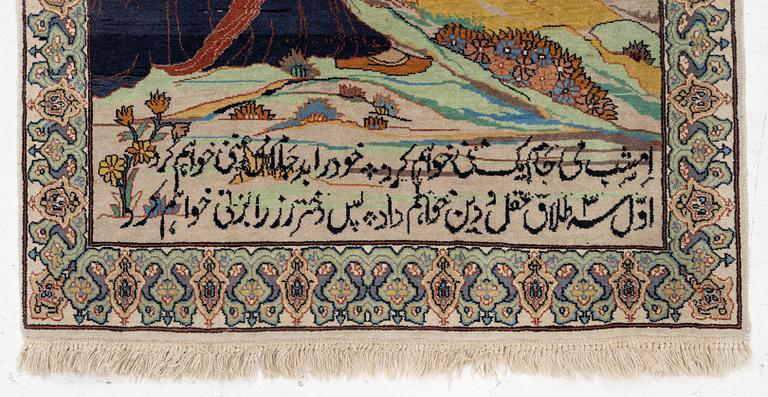 امشب می جام یکمنی خواهم کرد خود را بدو جام می غنی خواهم کرد
اوّل سه طلاق عقل و دین خواهم داد پس دختر رز را بزنی خواهم کرد